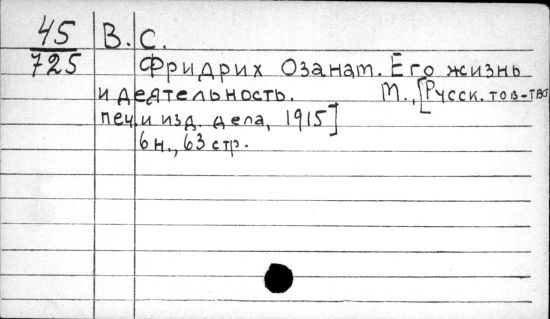 45 В. С.
725 Фридрих Озанам. Его жизнь
и деятельность. М., [Русск. тов-тво
печ. и изд. дела, 1915]
6 н., 63 стр.